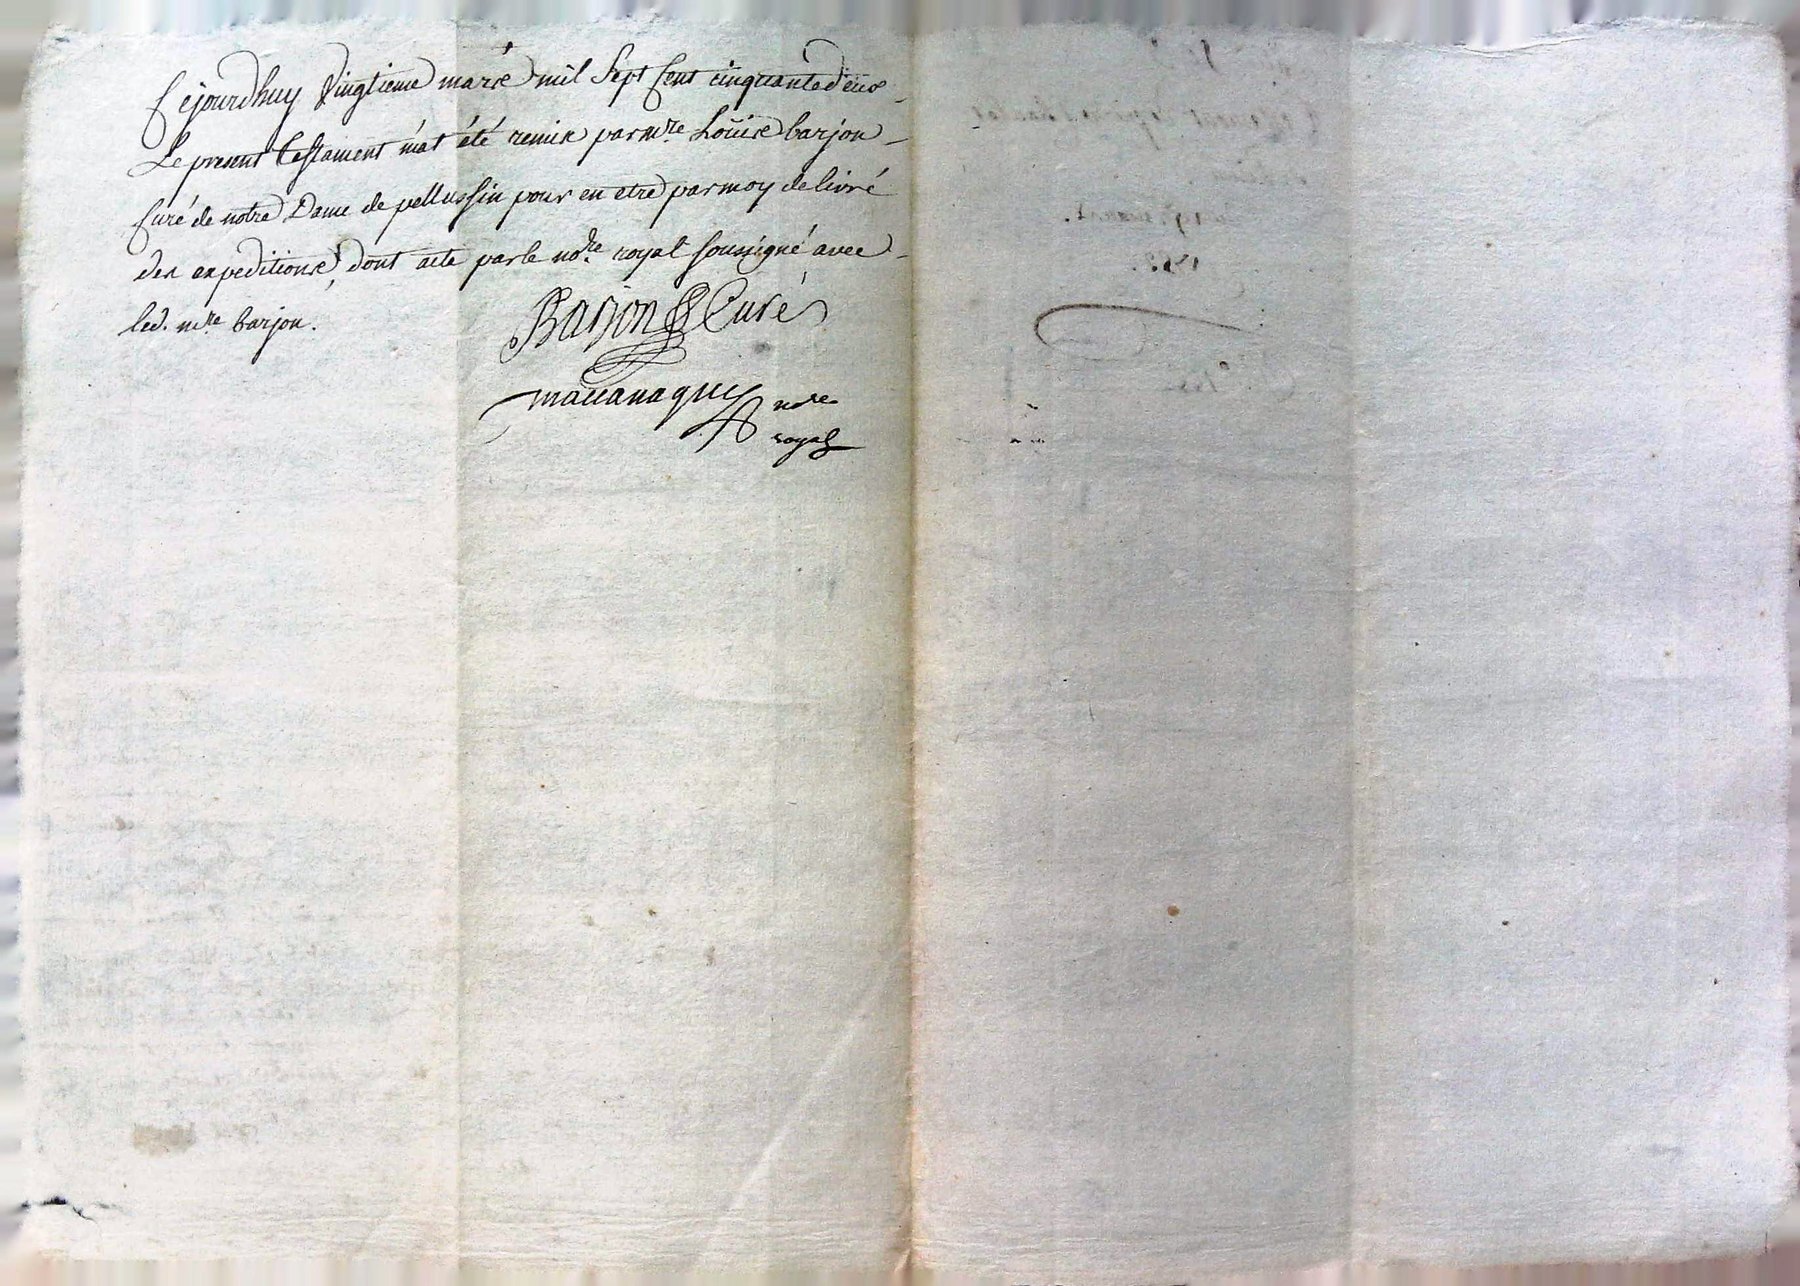 Cejourdhuy vingtieme mars mil sept cent cinquante deux
Le present testament m'at été remis par mre. Loüis barjon
Curé de notre Dame de pellussin pour en etre par moy delivré
des expeditions, dont acte par le nore. royal soussigné avec
led. mre barjon.
Barjon Curé
nore
royal